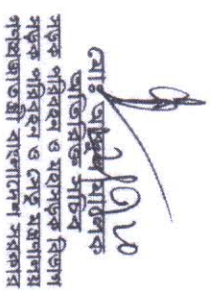 মোঃ আব্দুল মালেক
অতিরিক্ত সচিব
সড়ক পরিবহন ও মহাসড়ক বিভাগ
সড়ক পরিবহন ও সেতু মন্ত্রণালয়
গণপ্রজাতন্ত্রী বাংলাদেশ সরকার